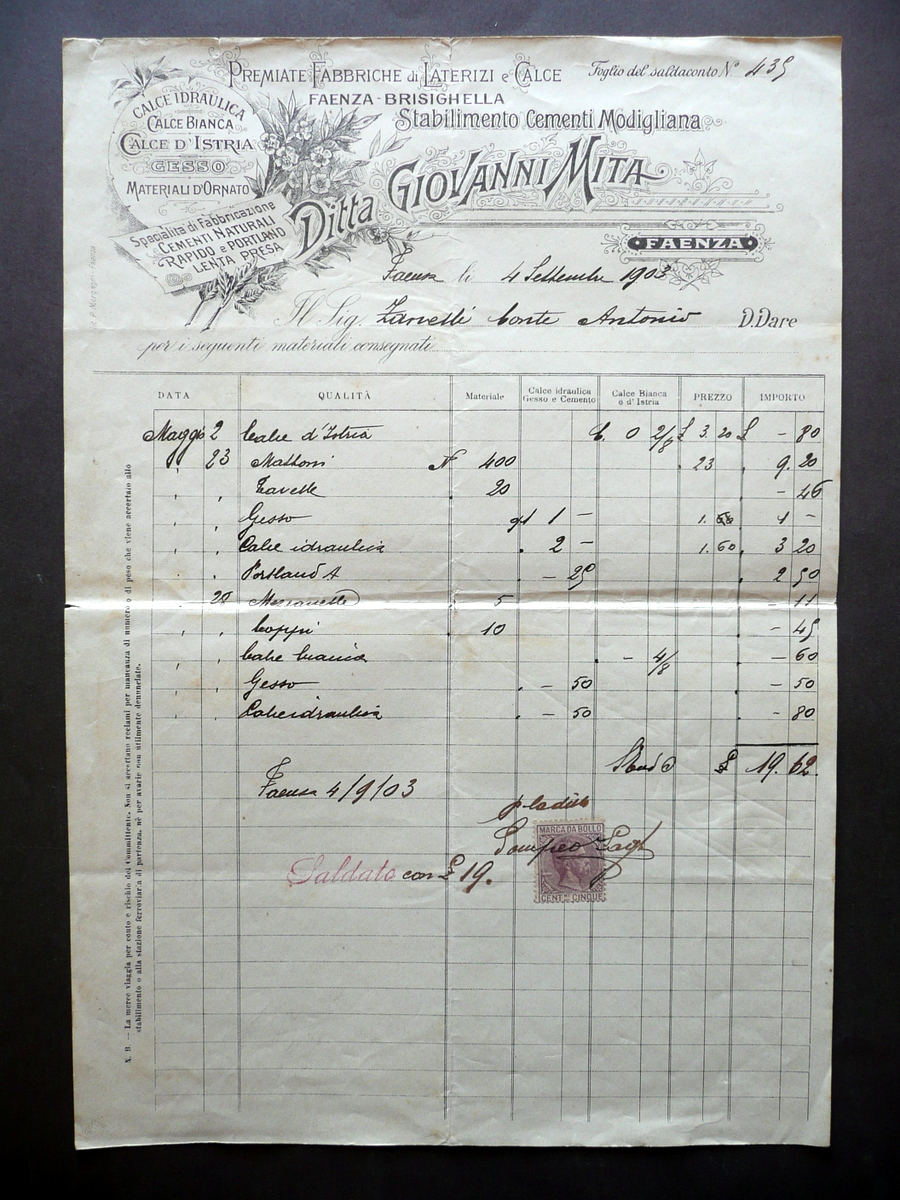 PREMIATE FABBRICHE di LATERIZI e CALCE
Foglio del saldaconto N° 435
FAENZA - BRISIGHELLA
Stabilimento Cementi Modigliana
Ditta GIOVANNI MITA
FAENZA
CALCE IDRAULICA
CALCE BIANCA
CALCE D'ISTRIA
GESSO
MATERIALI D'ORNATO
Specialità di Fabbricazione
CEMENTI NATURALI
RAPIDO e PORTLAND
LENTA PRESA
Faenza li 4 Settembre 1903
Il Sig. Zanelli Conte Antonio D. Dare
per i seguenti materiali consegnati
DATA QUALITÀ Materiale Calce idraulica Gesso e Cemento Calce Bianca o d'Istria PREZZO IMPORTO
Maggio 2 Calce d'Istria C. 0 2/8 £ 3.20 £ - 80
" 23 Mattoni N 400 23 9.20
" " Tavelle 20 - 46
" " Gesso ql 1 - 1. 1 -
" " Calce idraulica 2 - 1.60 3 20
" " Portland A - 25 2 50
28 5 - 11
" " Coppi 10 - 45
" " Calce bianca - 4/8 - 60
" " Gesso - 50 - 50
" " Calce idraulica - 50 - 80
£ 19.62
Faenza 4/9/03
p la ditta
Pompeo
MARCA DA BOLLO
CENT.mi CINQUE
Saldato con £ 19.
N. B. — La merce viaggia per conto e rischio del Committente. Non si accettano reclami per mancanza di numero o di peso che viene accertato allo
stabilimento o alla stazione ferroviaria di partenza, nè per avarie non utilmente denunciate.